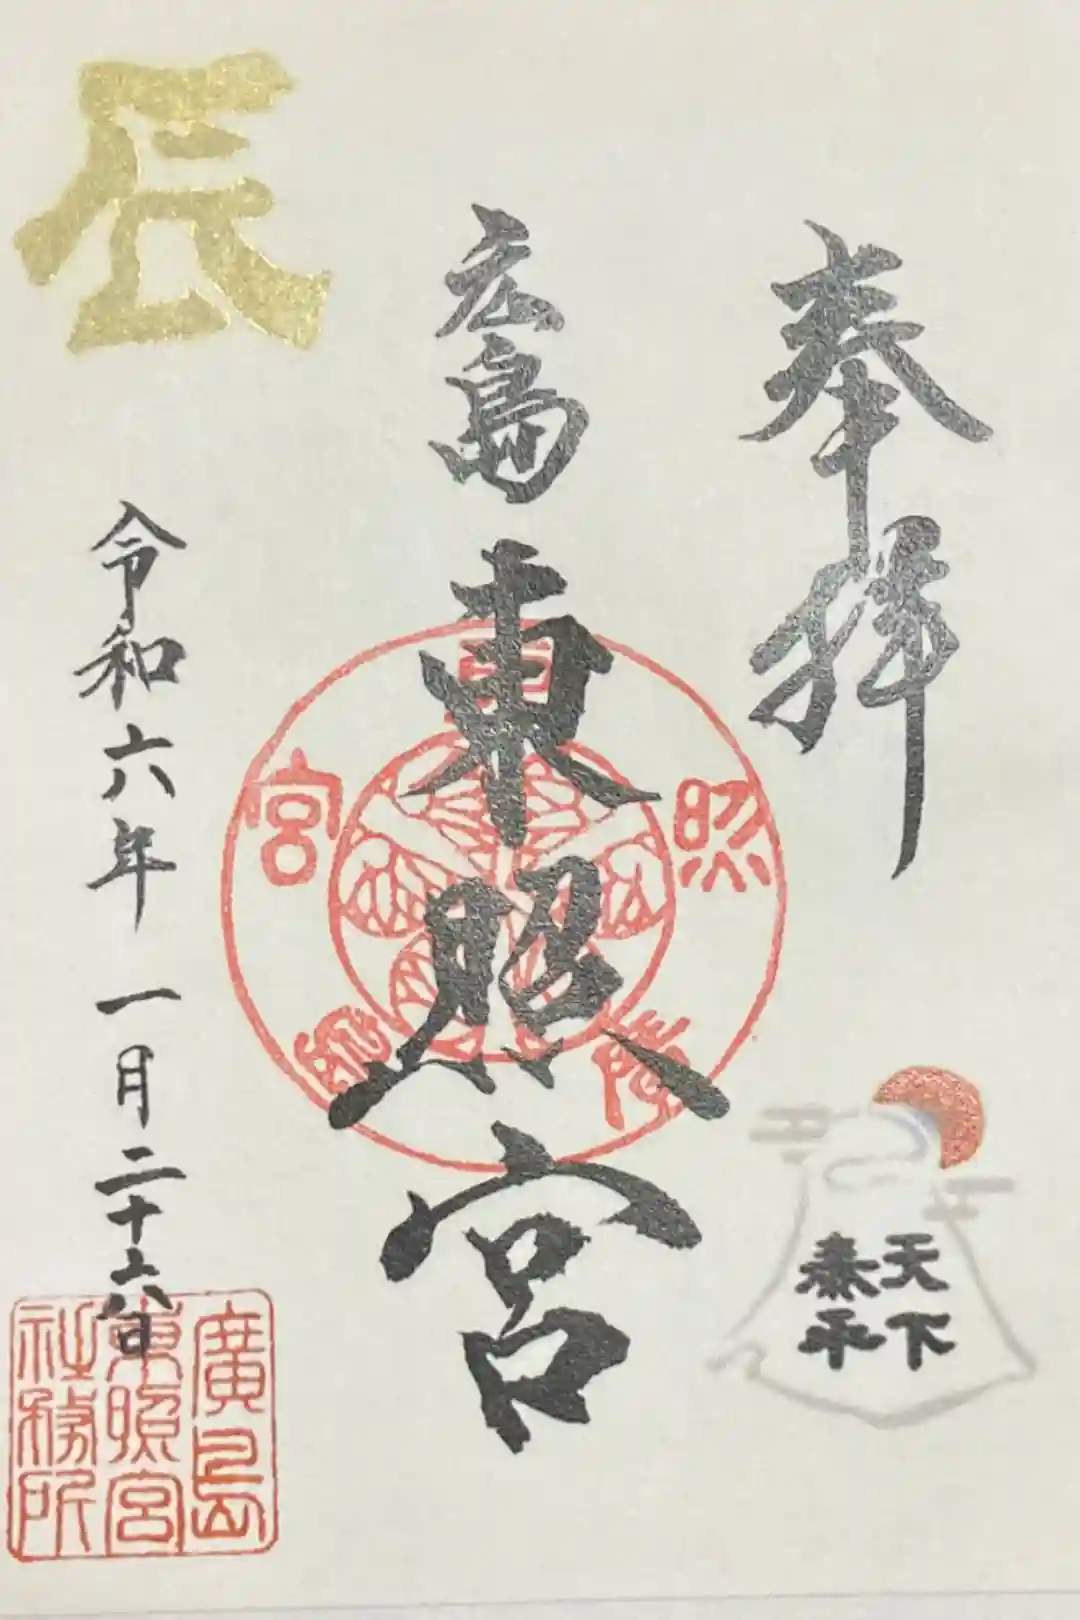 奉拝
天下
泰平
広島
東照宮
東照
宮
辰
令和六年 一月二十六日
廣島
東照宮
社務所